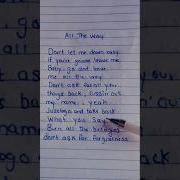 All The Way
Dont let me down easy
If you're gonna leave me
Baby, go and leave
me all the way
Dont ask for all your
things back, cussin' out
my name, yeah
Just go and take back
What you Say
Burn all the bridges
dont ask for forgiveness